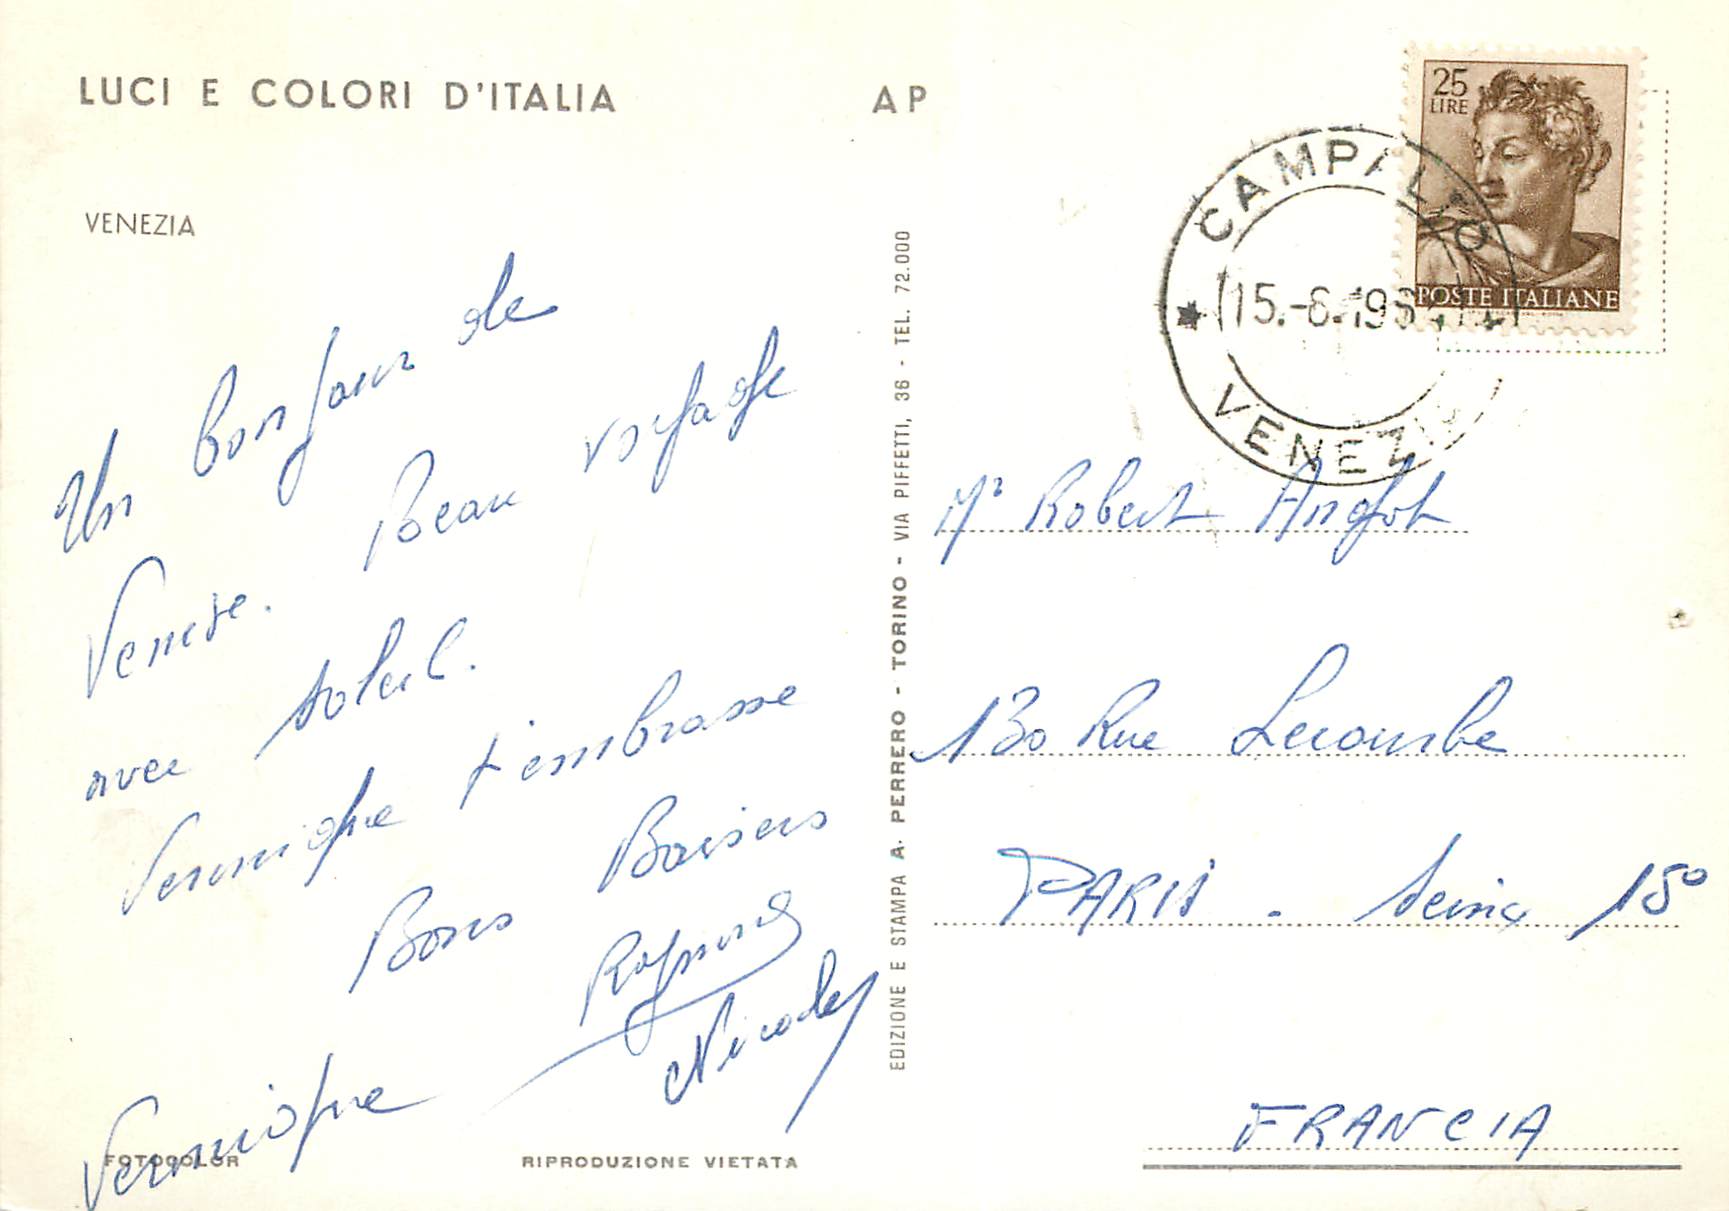 LUCI E COLORI D'ITALIA
AP
VENEZIA
Un bonjour de
Venise. Beau voyage
avec soleil.
Veronique t'embrasse
Bons Baisers
Nicole
Veronique
FOTOCOLOR
RIPRODUZIONE VIETATA
EDIZIONE E STAMPA A. PERRERO - TORINO - VIA PIFFETTI, 36 - TEL. 72.000
25
LIRE
POSTE ITALIANE
CAMPALTO
15.-6.196
VENEZIA
Mr Robert Anglot
130 Rue Lecourbe
PARIS - Seine 15º
FRANCIA